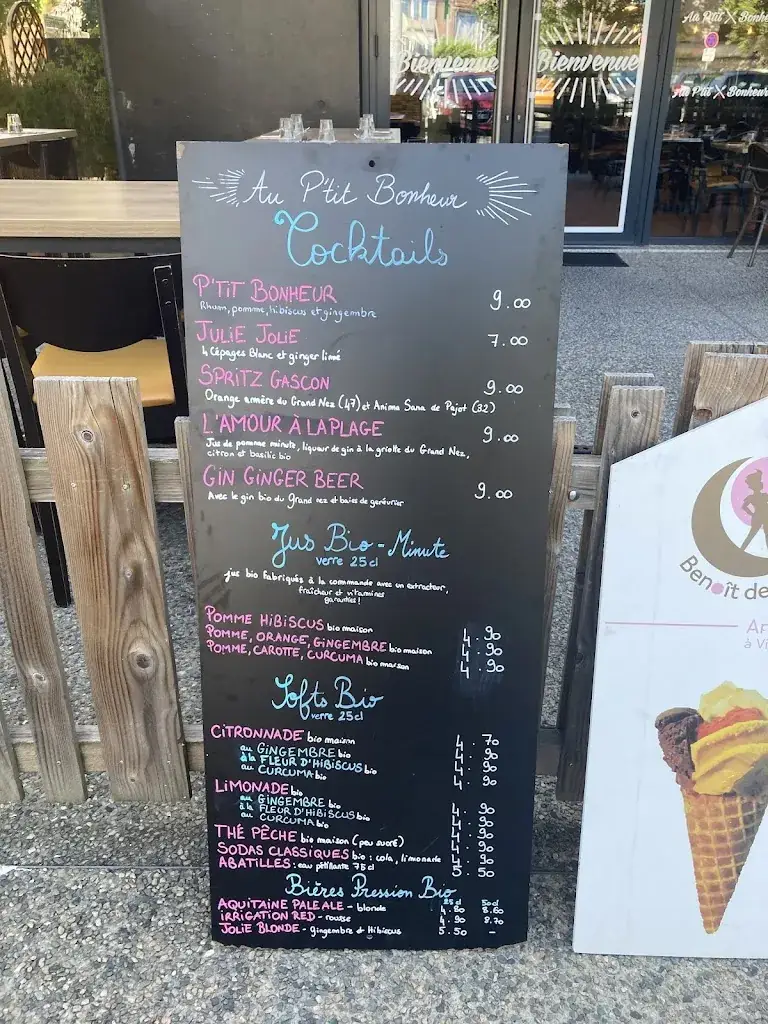 Bienvenue
Bienvenue
Au P'tit X Bonheur
Au P'tit Bonheur
Cocktails
P'TIT BONHEUR 9.00
Rhum, pomme, hibiscus et gingembre
JULIE JOLIE 7.00
4 Cépages Blanc et ginger limé
SPRITZ GASCON 9.00
Orange amère du Grand Nez (47) et Anima Sana de Pajot (32)
L'AMOUR À LA PLAGE 9.00
Jus de pomme minute, liqueur de gin à la griotte du Grand Nez,
citron et basilic bio
GIN GINGER BEER 9.00
Avec le gin bio du Grand nez et baies de genévrier
Jus Bio - Minute
verre 25 cl
jus bio fabriqués à la commande avec un extracteur,
fraîcheur et vitamines
garanties !
POMME HIBISCUS bio maison 4.90
POMME, ORANGE, GINGEMBRE bio maison 4.90
POMME, CAROTTE, CURCUMA bio maison 4.90
Softs Bio
verre 25 cl
CITRONNADE bio maison 4.70
au GINGEMBRE bio 4.90
à la FLEUR D'HIBISCUS bio 4.90
au CURCUMA bio 4.90
LIMONADE bio
au GINGEMBRE bio 4.90
à la FLEUR D'HIBISCUS bio 4.90
au CURCUMA bio 4.90
THÉ PÊCHE bio maison (peu sucré) 4.90
SODAS CLASSIQUES bio : cola, limonade 4.90
ABATILLES : eau pétillante 75 cl 5.50
Bières Pression Bio
25 cl 50 cl
AQUITAINE PALE ALE - blonde 4.80 8.60
IRRIGATION RED - rousse 4.90 8.70
JOLIE BLONDE - gingembre et Hibiscus 5.50 -
Benoît de
Ar
à Vi